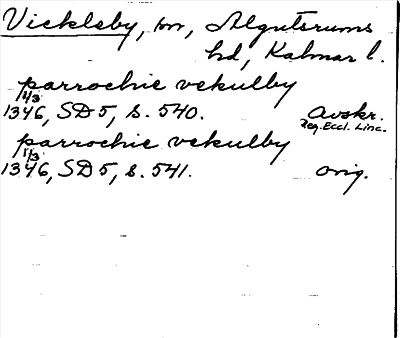 Vickleby, sn, Algutsrums
hd, Kalmar l.
parrochie vekulby
1/3
1346, SD 5, s. 540. Avskr.
Reg. Eccl. Linc.
parrochie vekulby
1/3
1346, SD 5, s. 541. orig.